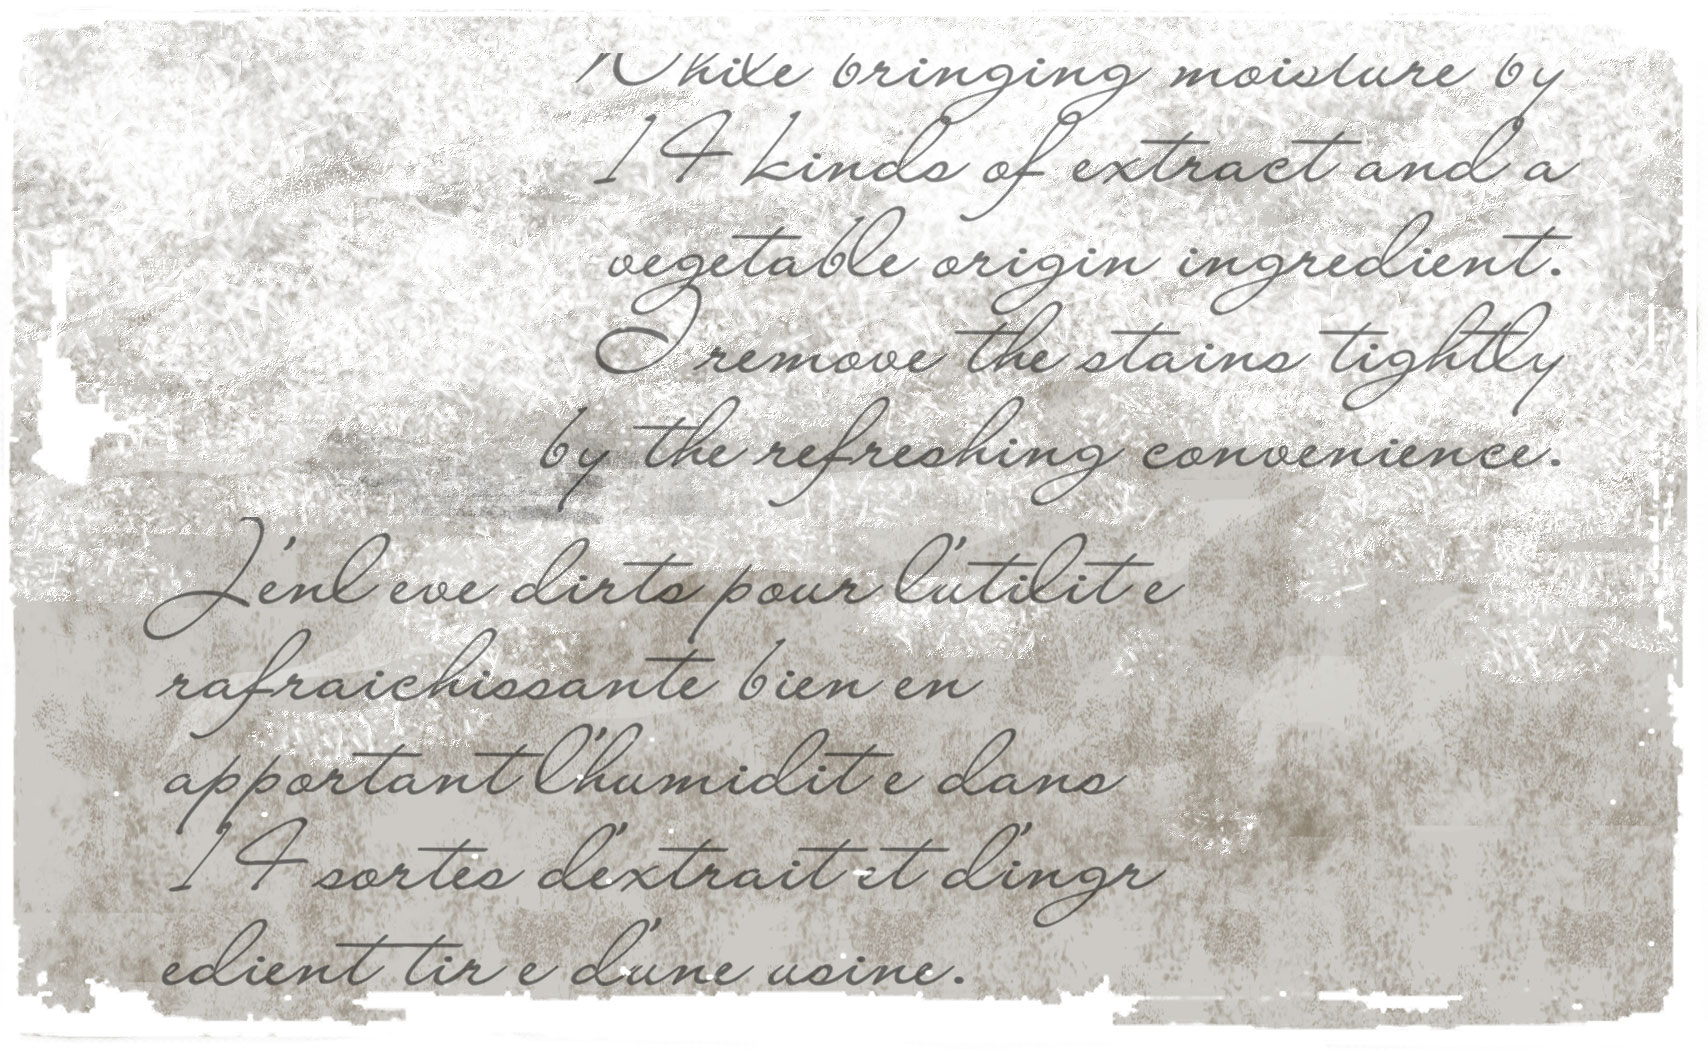 While bringing moisture by
14 kinds of extract and a
vegetable origin ingredient.
I remove the stains tightly
by the refreshing convenience.
J'enl eve dirts pour l'utilit e
rafraichissante bien en
apportant l'humidit e dans
14 sortes d'extrait et d'ingr
edient tir e d'une usine.